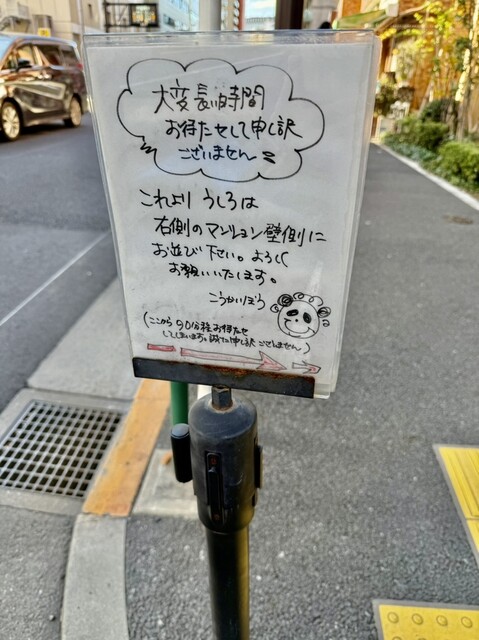 大変長い時間
お待たせして申し訳
ございません
これより うしろは
右側のマンション壁側に
お並び下さい。よろしく
お願いいたします。
こうかいぼう
(ここから90分程お待たせ
してしまいます。誠に申し訳ございません)